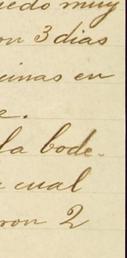 uedo muy
on 3 dias
cinas en
e.
la bode-
a cual
ron 2